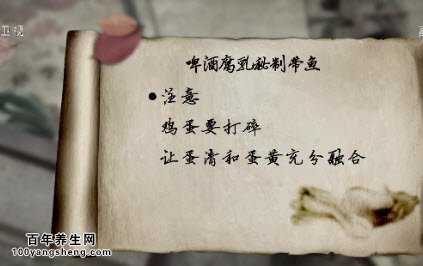 卫视
啤酒腐乳秘制带鱼
●注意
鸡蛋要打碎
让蛋清和蛋黄充分融合
百年养生网
100yangsheng.com